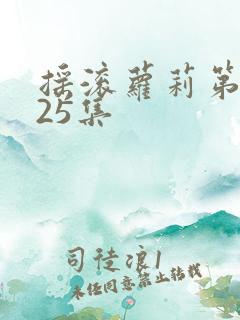 摇滚萝莉第
25集
司徒浪1
未经同意禁止转载